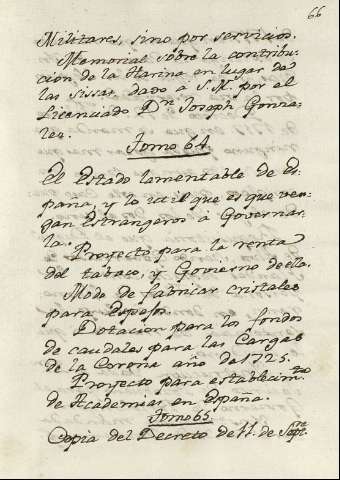 66
Militares, sino por servicios.
Memorial sobre la contribu-
cion de la Harina en lugar de
las sissas, dado à S. M. por el
Licenciado Dn. Joseph Gonza-
les.
Tomo 64.
El Estado lamentable de Es-
paña, y lo util que es que ven-
gan Estrangeros à Governar-
la.
Proyecto para la renta
del tabaco, y Govierno de ella.
Modo de fabricar cristales
para Espejos.
Dotacion para los fondos
de caudales para las Cargas
de la Corona año de 1725.
Proyecto para establecim.to
de Academias en España.
Tomo 65.
Copia del Decreto de 11. de Sepre.